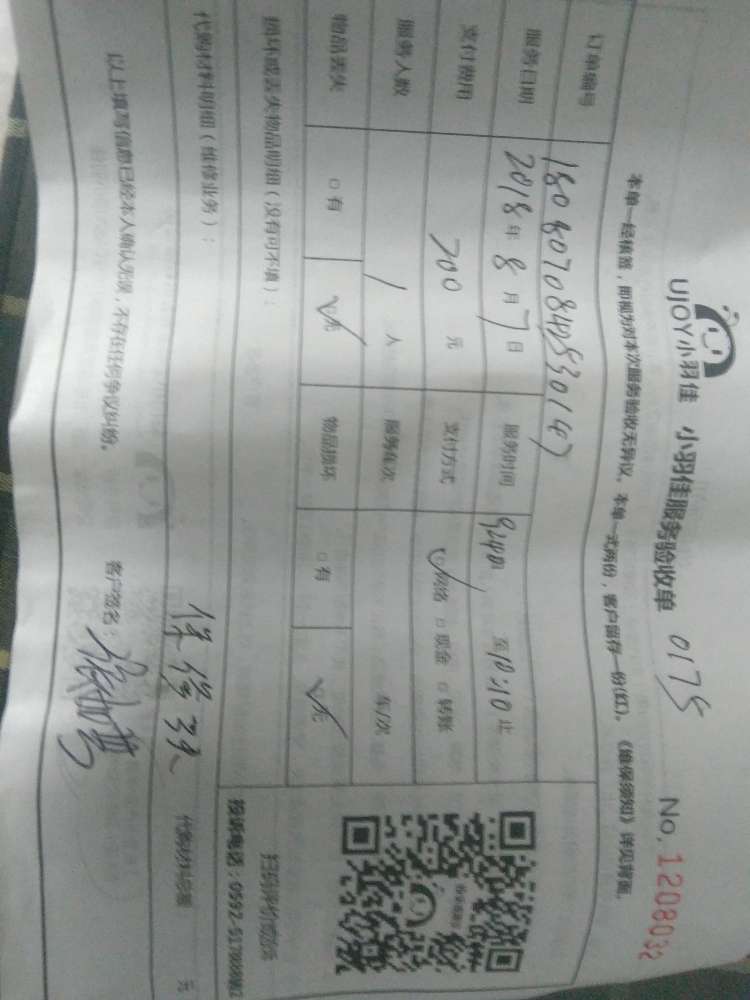 UJOY小羽佳 小羽佳服务验收单 0175 No. 1208032
本单一经核签，即视为对本次服务验收无异议。本单一式两份，客户留存一份(红)。《维保须知》详见背面。
订单编号
服务日期 2018年 8月 7日 服务时间 9:40 至 10:10 止
支付费用 700 元 支付方式 网络 □ 现金 □ 转账
服务人数 1 人 服务车次 车/次
物品丢失 □ 有 无 物品损坏 □ 有 无
损坏或丢失物品明细（没有可不填）：
扫码评价或投诉
投诉电话：0592-5179
代购材料明细（维修业务）： 代购材料总额 元
保修
以上填写信息已经本人确认无误，不存在任何争议纠纷。 客户签名：